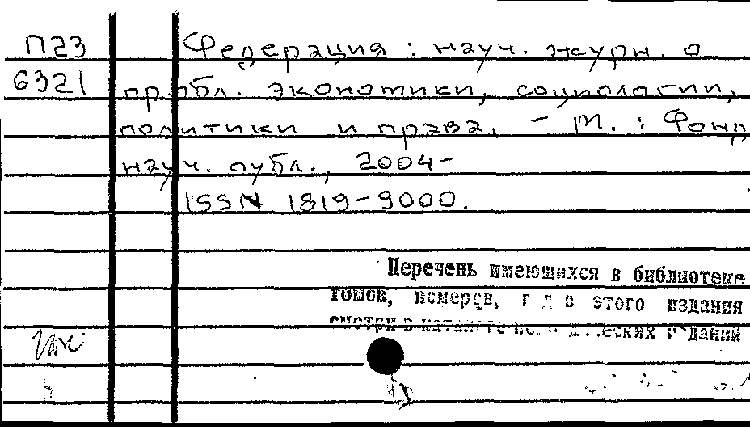 П23 Федерация : науч. журн. о
6321 пробл. экономики, социологии,
политики и права. - М. : Фонд
науч. публ., 2004-
ISSN 1819-9000.
Перечень имеющихся в библиотеке
томов, номеров, г д в этого издания
смотри в каталоге изданий